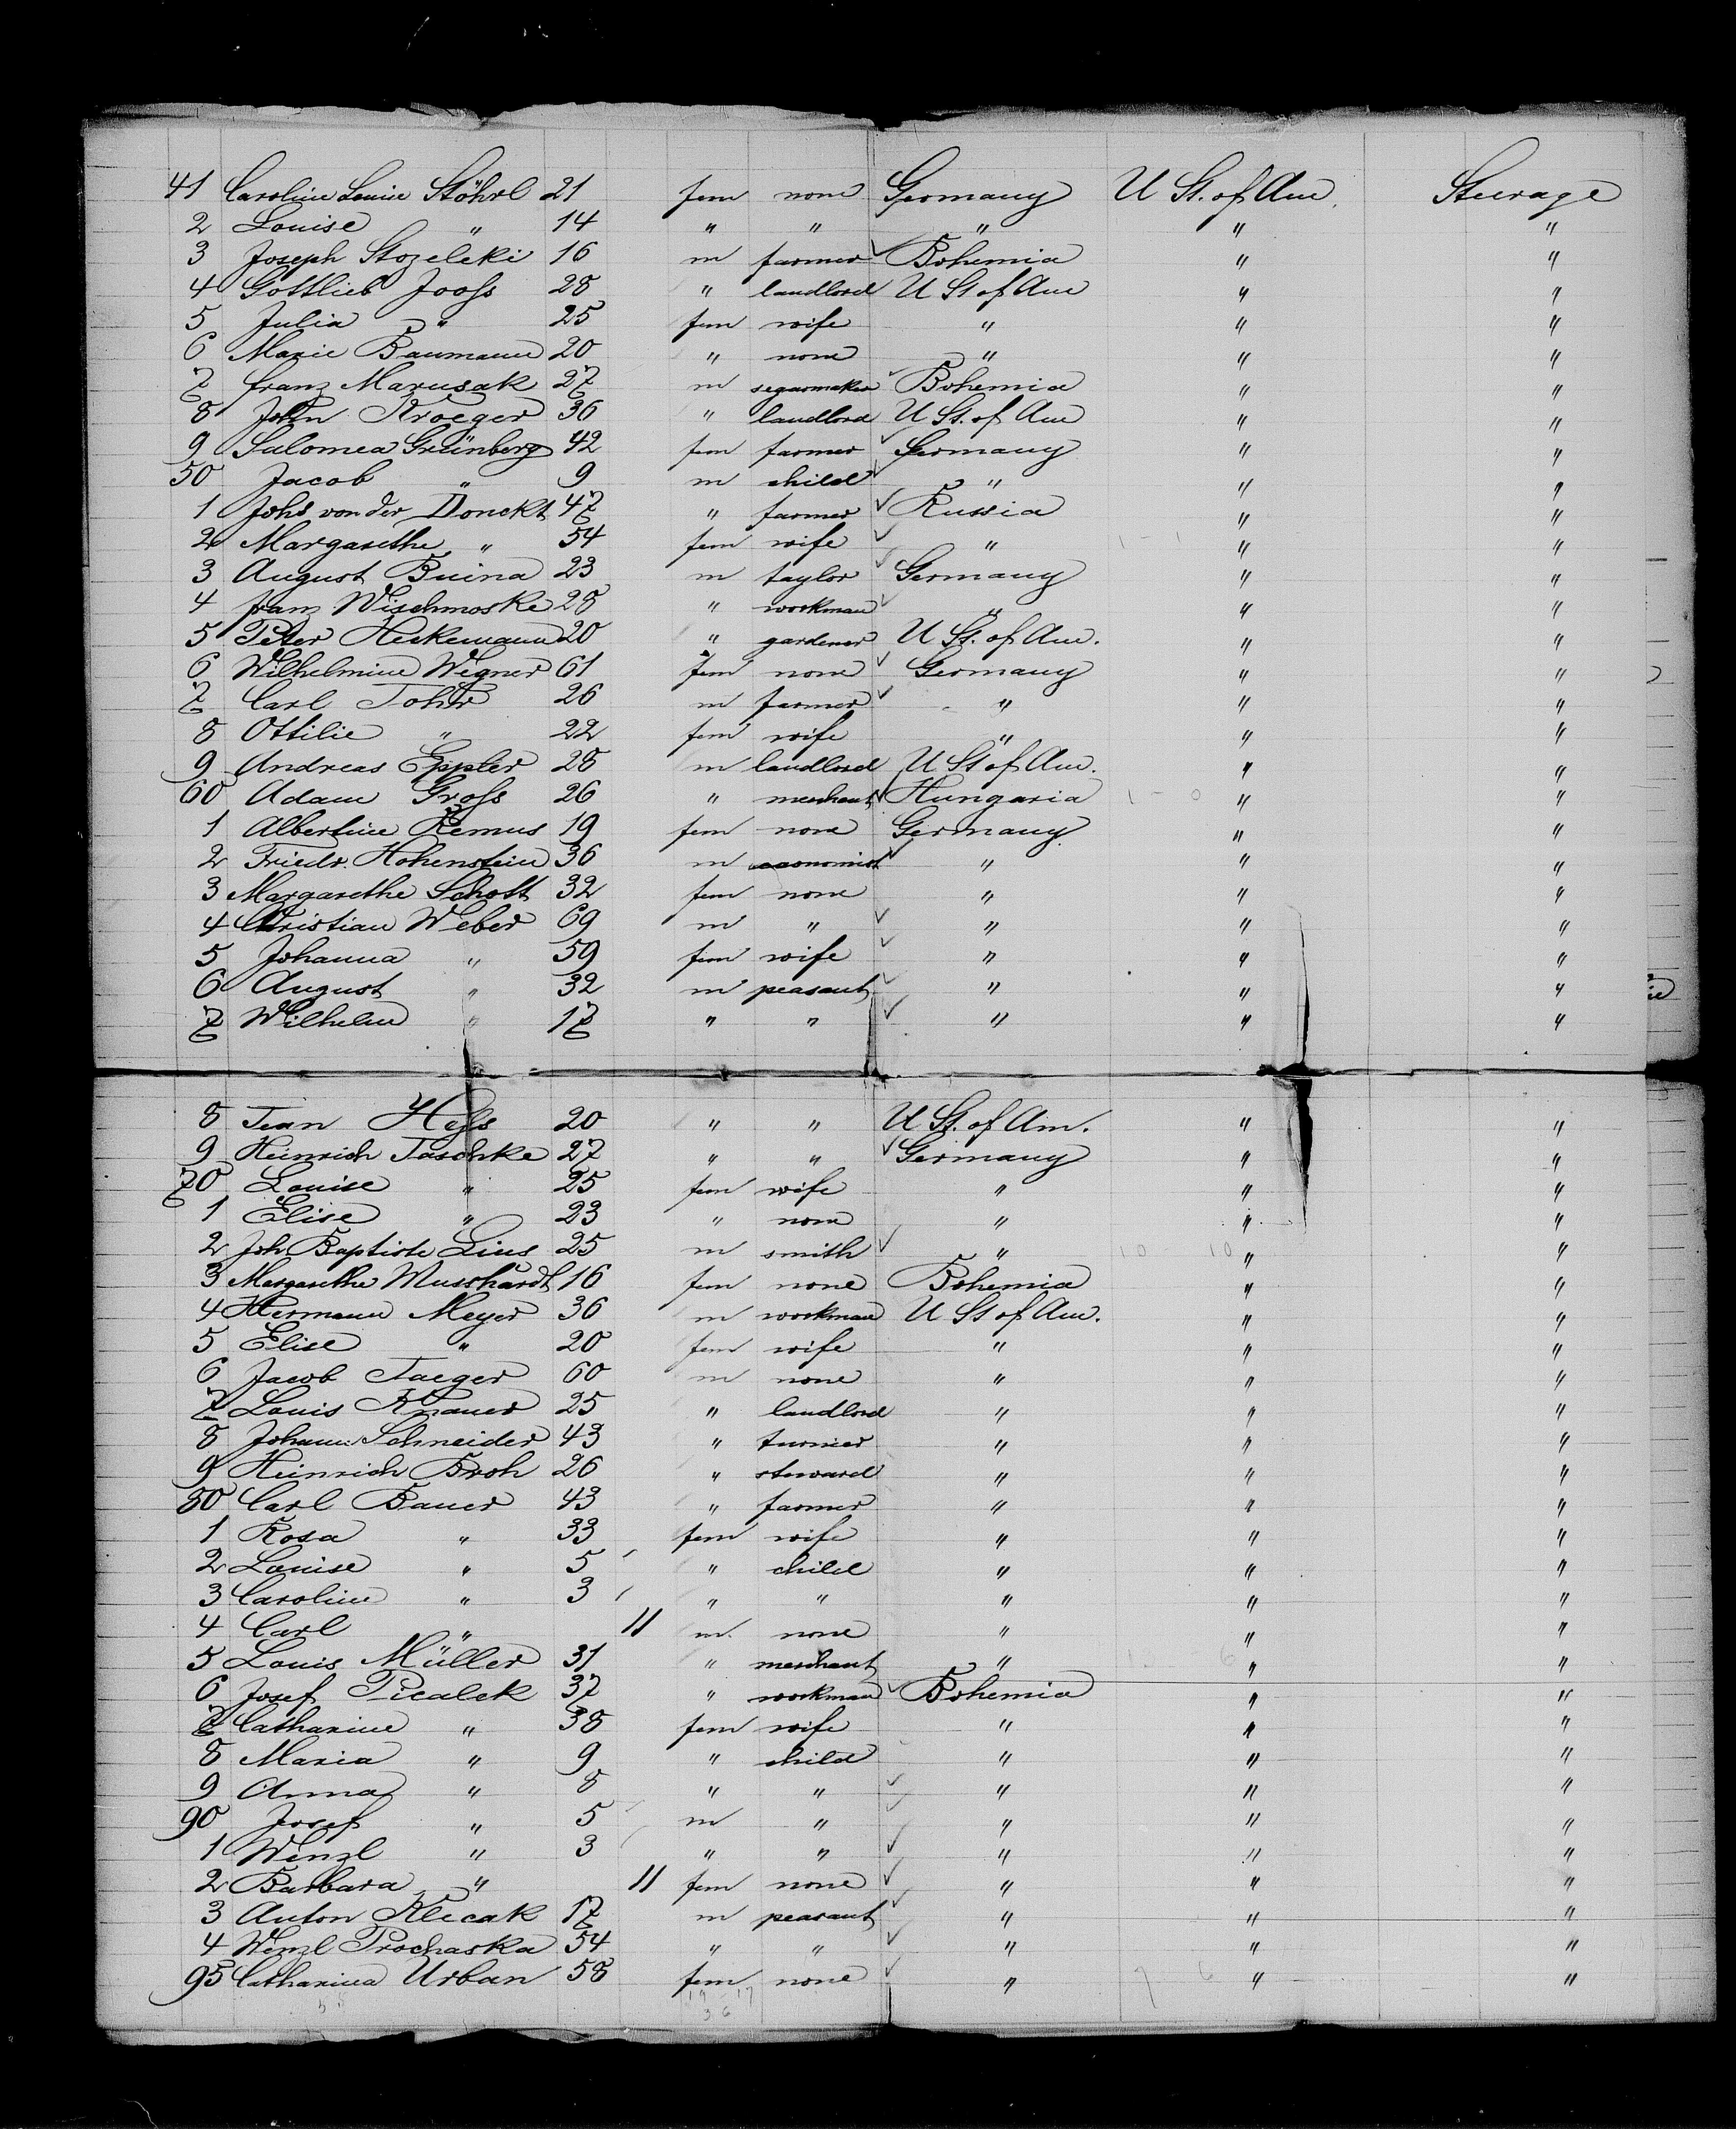 41 Caroline Louise Stöhrl 21 fem none Germany U St. of Am. Steerage
2 Louise " 14 " " " " "
3 Joseph Stozeleki 16 m farmer Bohemia " "
4 Gottlieb Jooss 28 " landlord U St of Am " "
5 Julia " 25 fem wife " " "
6 Marie Baumann 20 " none " " "
7 Franz Marusak 27 m segarmaker Bohemia " "
8 John Kroeger 36 " landlord U St. of Am " "
9 Salomea Grünberg 42 fem farmer Germany " "
50 Jacob " 9 m child " " "
1 Johs von der Donckt 47 " farmer Russia " "
2 Margarethe " 54 fem wife " " "
3 August Buina 23 m taylor Germany " "
4 Franz Wischmoske 28 " workman " " "
5 Peter Heckemann 20 " gardener U St. of Am. " "
6 Wilhelmine Wegner 61 fem none Germany " "
7 Carl Tohr 26 m farmer " " "
8 Ottilie " 22 fem wife " " "
9 Andreas Eppler 28 m landlord U St of Am. " "
60 Adam Gross 26 " merchant Hungaria " "
1 Albertine Remus 19 fem none Germany " "
2 Friedr. Hohenstein 36 m economist " " "
3 Margarethe Schott 32 fem none " " "
4 Christian Weber 69 m " " " "
5 Johanna " 59 fem wife " " "
6 August " 32 m peasant " " "
7 Wilhelm " 17 " " " " "
8 Jean Hess 20 " " U St. of Am. " "
9 Heinrich Taschke 27 " " Germany " "
70 Louise " 25 fem wife " " "
1 Elise " 23 " none " " "
2 Joh Baptiste Lius 25 m smith " " "
3 Margarethe Musshardt 16 fem none Bohemia " "
4 Hermann Meyer 36 m workman U St of Am. " "
5 Elise " 20 fem wife " " "
6 Jacob Jaeger 60 m none " " "
7 Louis Knauer 25 " landlord " " "
8 Johann Schneider 43 " turnier " " "
9 Heinrich Broh 26 " steward " " "
80 Carl Bauer 43 " farmer " " "
1 Rosa " 33 fem wife " " "
2 Louise " 5 " child " " "
3 Caroline " 3 " " " " "
4 Carl " 11 m none " " "
5 Louis Müller 31 " merchant " " "
6 Josef Picalek 37 " workman Bohemia " "
7 Catharine " 38 fem wife " " "
8 Maria " 9 " child " " "
9 Anna " 8 " " " " "
90 Josef " 5 m " " " "
1 Wenzl " 3 " " " " "
2 Barbara " 11 fem none " " "
3 Anton Klecak 17 m peasant " " "
4 Wenzl Prochaska 54 " " " " "
95 Catharina Urban 58 fem none " " "